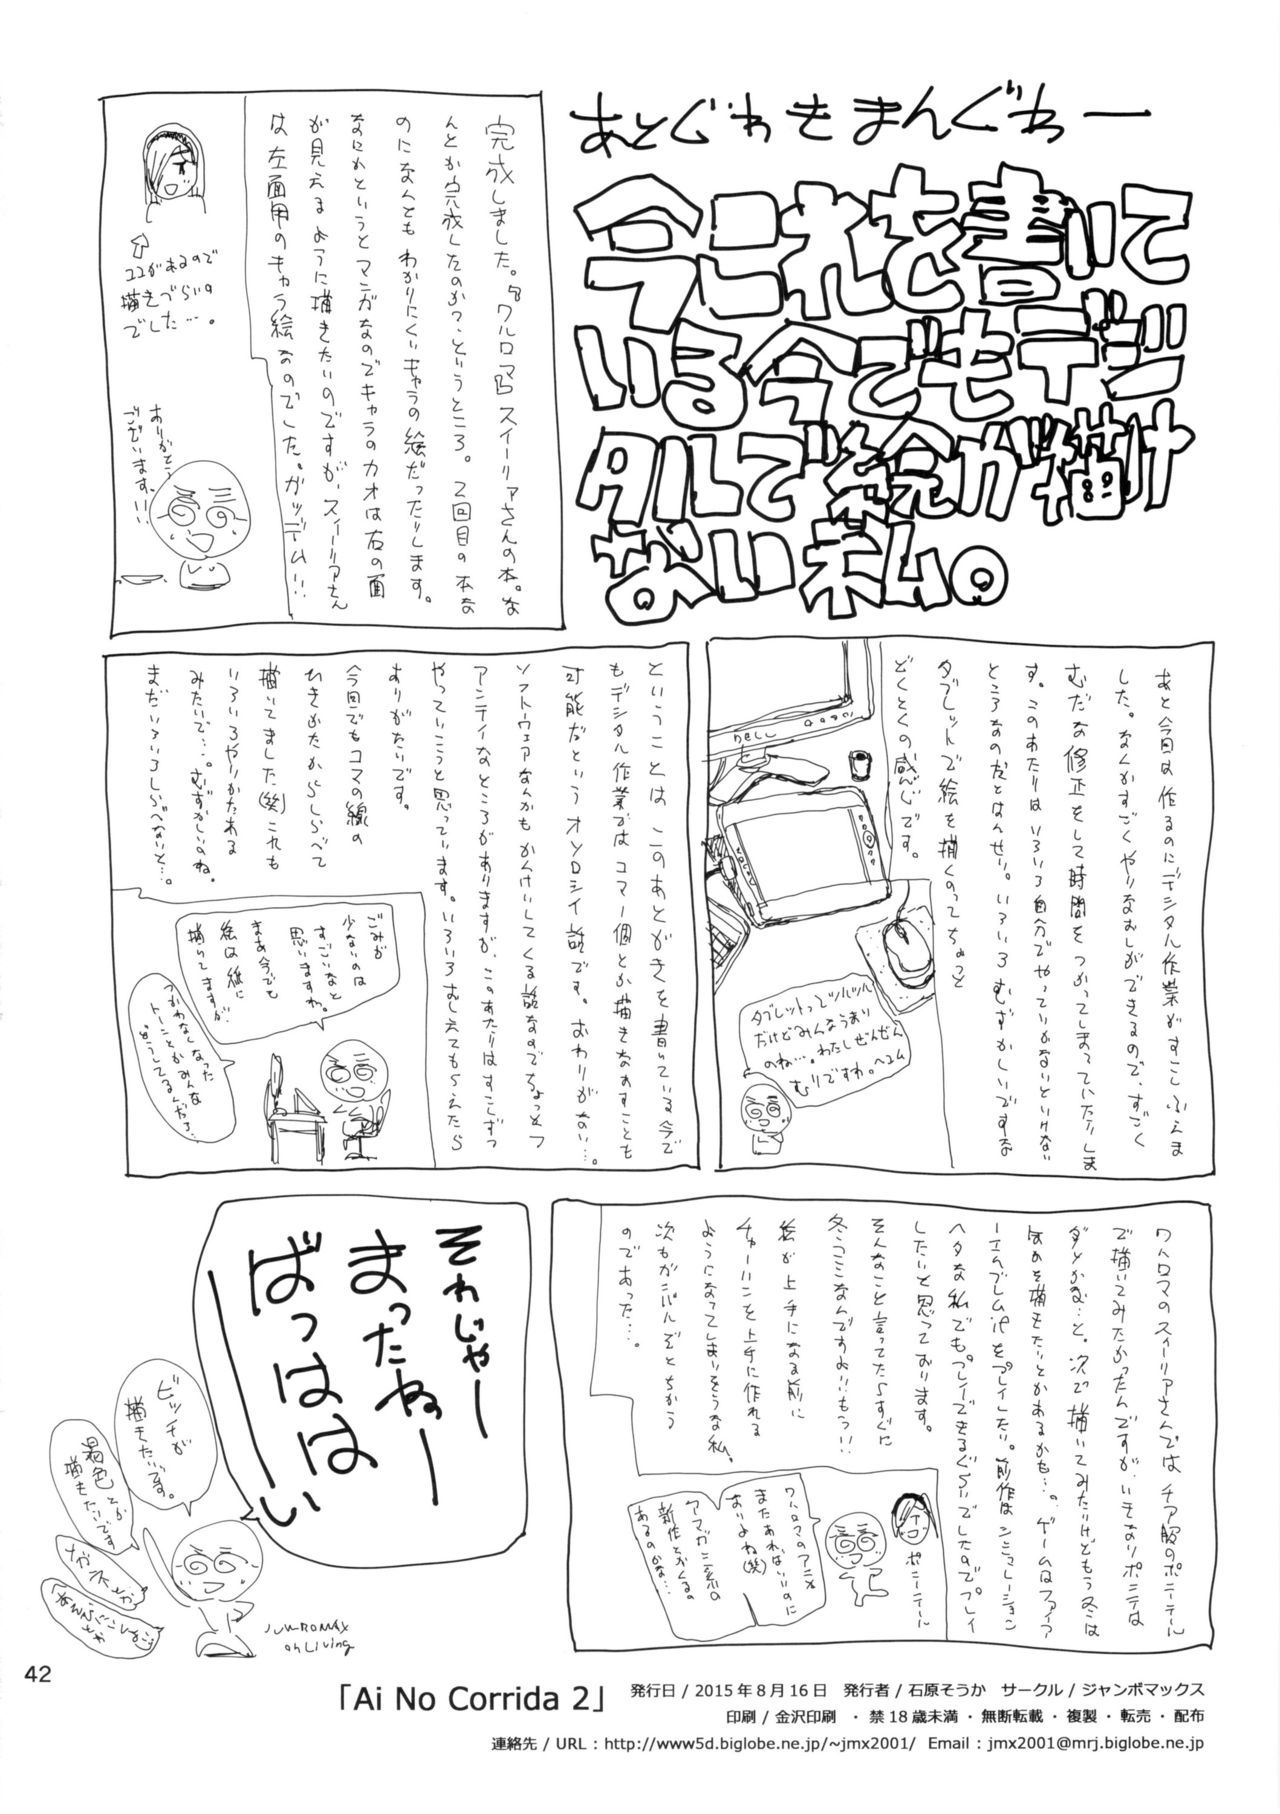 あとぐわもまんぐわー
今これを書いて
いる今でもデジ
タルで絵が描け
ない私。
完成しました。『ワルロマ』スイーリアさんの本。な
んとか完成したのかっ、というところ。2回目の本な
のになんともわかりにくいキャラの絵だったりします。
なにかというとマンガなのでキャラのカオは右の面
が見えるように描きたいのですが、スイーリアさん
は左面用のキャラ絵なのでした。ガッデーム!!
ココがあるので
描きづらいの
でした…。
ありがとう
ございます!!
あと今回は作るのにデジタル作業がすこしふえま
した。なんかすごくやりなおしができるので、すごく
むだな修正をして時間をつかってしまっていたりしま
す。このあたりはいろいろ自分でやっていかないといけない
ところなのだとはんせい。いろいろむずかしいですな
タブレットで絵を描くのってちょっと
どくとくの感じです。
DELL
タブレットってツルツル
だけどみんなうまい
のね…。わたしぜんぜん
むりですわ。ヘコム
ということはこのあとがきを書いている今で
もデジタル作業ではコマ一個とか描きなおすことも
可能だというオソロシイ話です。おわりがない…。
ソフトウェアなんかもかんけいしてくる話なのでちょっとフ
アンティなところがありますが、このあたりはすこしずつ
やっていこうと思っています。いろいろおしえてもらえたら
ありがたいです。
今回でもコマの線の
ひきかたからしらべて
描いてました(笑)これも
いろいろやりかたある
みたいで…。むずかしいのね。
まだいろいろしらべないと…。
ごみが
少ないのは
すごいなと
思いますわ。
まあ今でも
絵は紙に
描いてますが
つかわなくなった
トーンとかみんな
どうしてるんだろ…
ワルロマのスイーリアさんではチア服のポニーテール
で描いてみたかったんですが、いきなりポニテは
ダメかな…と。次で描いてみたいけどもう冬は
を描きたいとかあるかも…。ゲームはファイア
ーエムブレムifをプレイしたい。前作はシミュレーション
ヘタな私でもプレイできるぐらいでしたのでプレイ
したいと思っております。
そんなこと言ってたらすぐに
冬コミなんですよ!!もうっ!!
絵が上手になる前に
チャーハンを上手に作れる
ようになってしまいそうな私。
次もガンバルぞとちかう
のであった…。
ポニーテール
ワルロマのアニメ
またあればいいのに
おりよね(笑)
アマガミ系の
新作とかくるの
あるのかな…
それじゃー
まったねー
ばっははーい
ビッチが
描きたいです。
褐色とか
描きたいです
メガネとか
JUMBOMAX
on Living
42
「Ai No Corrida 2」 発行日 / 2015年8月16日 発行者 / 石原そうか サークル / ジャンボマックス
印刷 / 金沢印刷 ・禁18歳未満・無断転載・複製・転売・配布
連絡先 / URL : http://www5d.biglobe.ne.jp/~jmx2001/ Email : jmx2001@mrj.biglobe.ne.jp